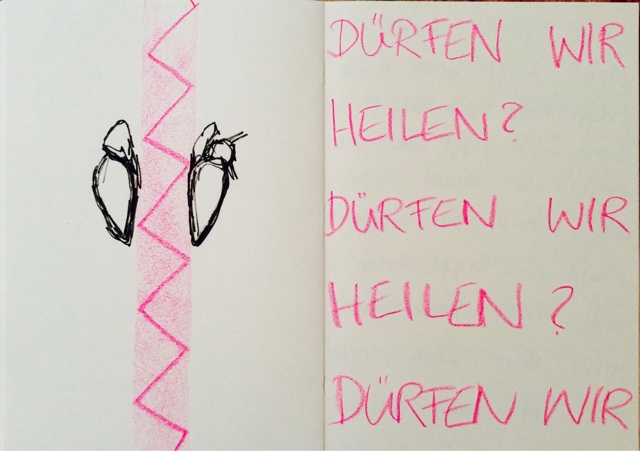 DÜRFEN WIR
HEILEN?
DÜRFEN WIR
HEILEN?
DÜRFEN WIR